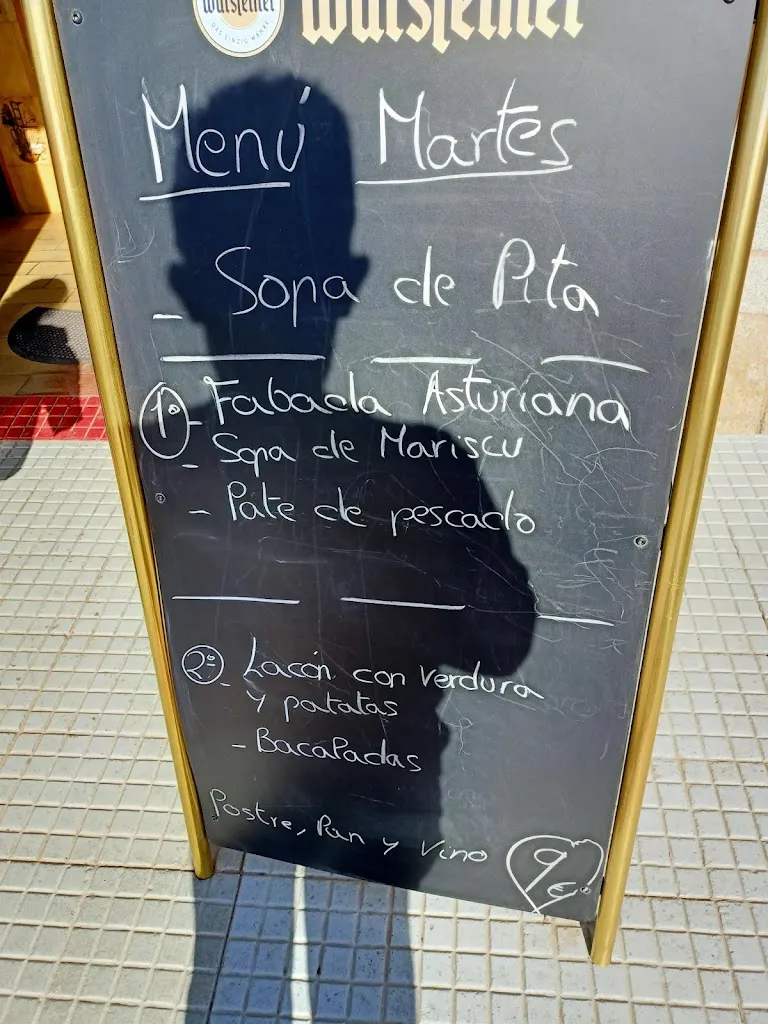 Warsteiner
DAS EINZIG WAHRE
Warsteiner
Menú Martes
- Sopa de Pita
1º - Fabada Asturiana
- Sopa de Mariscu
- Pate de pescado
2º - Lacón con verdura
y patatas
- Bacaladas
Postre, Pan y Vino 9€